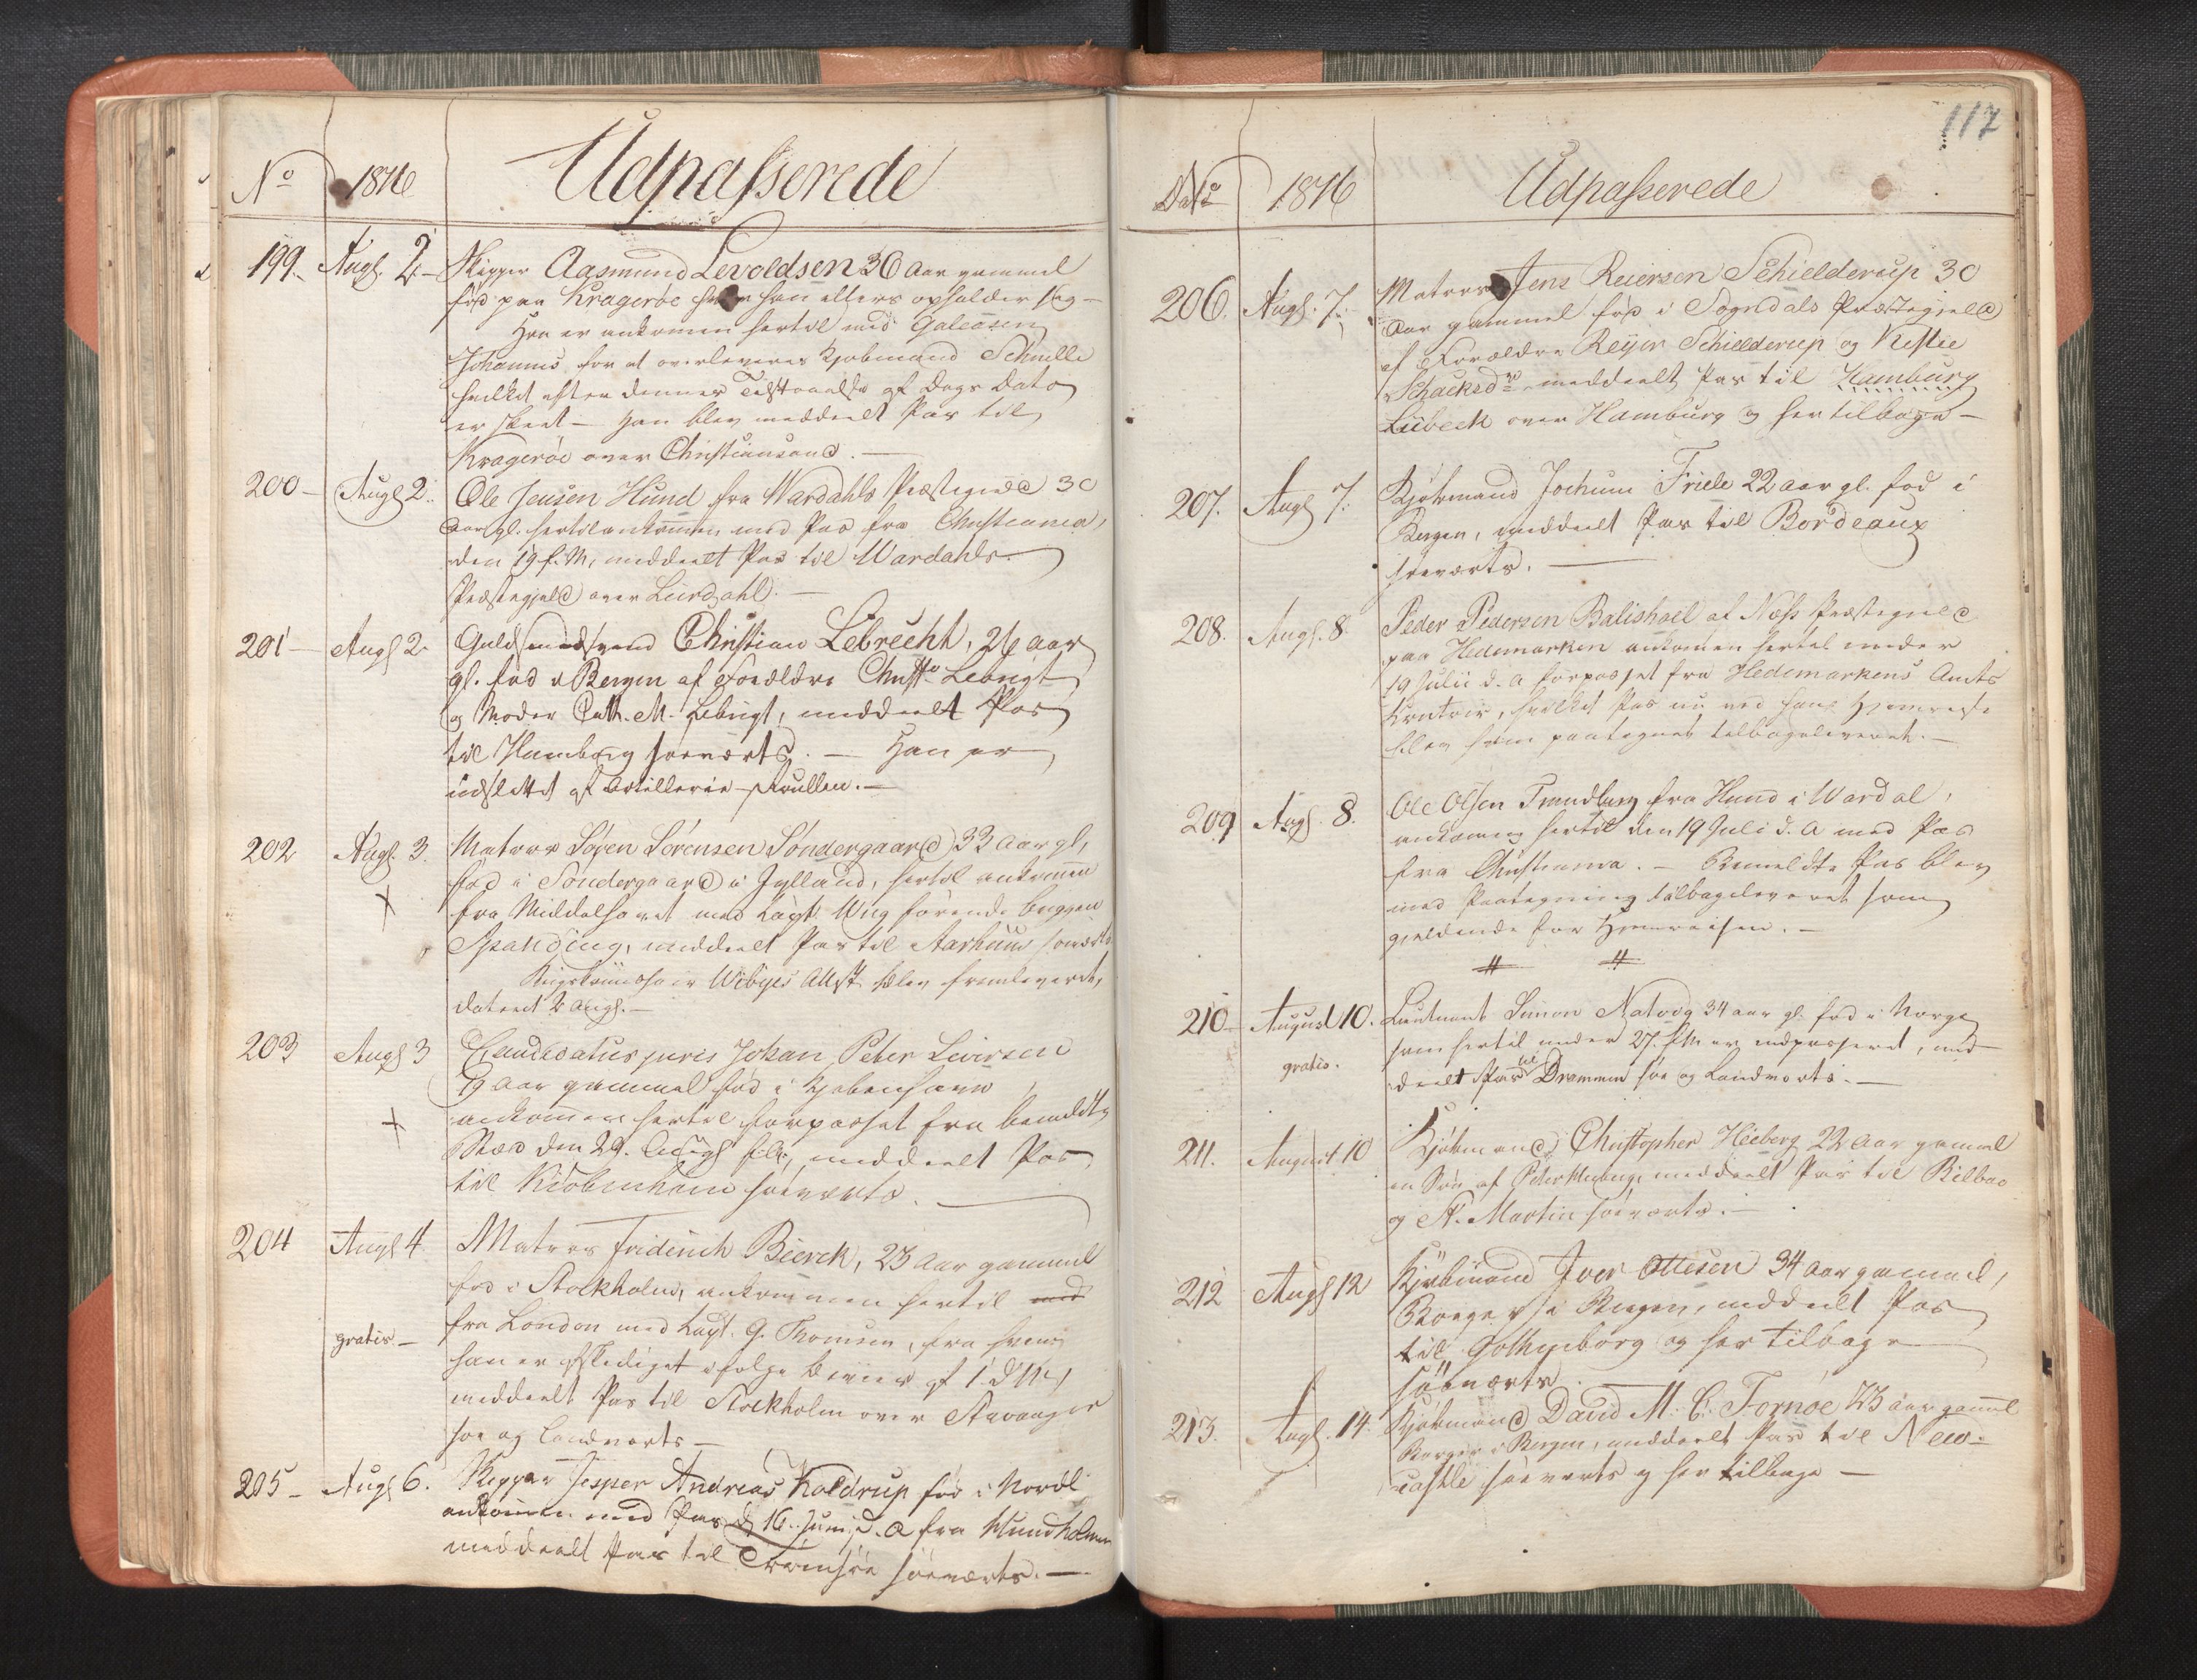 No 1816 Udpasserede
199. Augs. 2. Skipper Aasmund Levoldsen 36 Aar gammel
fød paa Kragerøe hvor han ellers opholder sig –
Han er ankommen hertil med Galeasen
Johannes for at overleveres Kjøbmand Schnelle
hvilket efter dennes Tilstaaelse af Dags Dato
er skeet – han blev meddeelt Pas til
Kragerøe over Christiansand. –
200 – Augs 2. Ole Jensen Hund fra Wardahls Præstegield 30
Aar gl. hertilankommen med Pas fra Christiania,
den 19 f. M, meddeelt Pas til Wardahls
Præstegjeld over Leirdahl. –
201 – Augs 2. Guldsmedsvend Christian Lebrecht, 26 Aar
gl. fød i Bergen af Forældre Chrste Lebrigt
og Moder Cath. M. Lebrigt, meddeelt Pas
til Hamborg søeværts. – Han er
udslettet af Artillerie-Rullen. –
202 Augs. 3. Matros Søren Sørensen Søndergaard 33 Aar gl,
fød i Søndergaard i Jylland, hertil ankommen
fra Middelhavet med Capt. Wiig førende Briggen
meddeelt Pas til Aarhuus søeværts
Attst. blev fremleveret,
dateret 2 Augs. –
203 Augs 3 Candidatus juris Johan Peter Liversen
Aar gammel fød i Kjøbenhavn
ankommen hertil forpasset fra bemeldte
Stæd den 29. Augs f. A, meddeelt Pas
til Kiøbenhavn søeværts.
204 Augs 4 Matros Friderich Bierck, 23 Aar gammel
fød i Stockholm, ankommen hertil med
gratis – fra London med Capt. G. Thomsen, fra hvem
han er afskediget ifølge Beviis af 1 d M,
meddeelt Pas til Stockholm over Stavanger
søe og landværts –
205 – Augs 6. Skipper Jesper Andreas Koldrup fød i Nordl.
ankommen med Pas d. 16. Juni d. A fra Mundholmen
meddeelt Pas til Tromsøe søeværts. –
117
Dato 1816 Udpasserede
206. Augs. 7. Matros Jens Reiersen Schielderup 30
Aar gammel fød i Sogndals Præstegjeld
af Forældre Reijer Schielderup og Kistie
Schacksdr meddeelt Pas til Hamburg
Lübeck over Hamburg og her tilbage –
207. Augs 7. Kjøbmand Jochum Friele 22 Aar gl. fød i
Bergen, meddeelt Pas til Bordeaux
søeværts. –
208. Augs. 8. Peder Pedersen Balishoel af Næss Præstegield
paa Hedemarken ankommen hertil under
19 Julii d. A forpasset fra Hedemarkens Amts
Contoir, hvilket Pas nu ved hans Hjemreise
blev ham paategnet tilbageleveret. –
209 Augs. 8. Ole Olsen Trondberg fra Hund i Wardal,
ankommen hertil den 19 Juli d. A med Pas
fra Christiania. – Bemeldte Pas blev
med Paategning tilbageleveret som
gjeldende for Hjemreisen. –
210 – August 10. Lieutnant Simon Natvig 34 Aar gl. fød i Norge
som hertil under 27. f. M er indpasseret, med-
gratis. deelt Pas til Drammen søe og Landværts. –
211. August 10 Kjøbmand Christopher Heiberg 22 Aar gammel
en Søn af Peter Heiberg, meddeelt Pas til Bilbao
og St. Martin søeværts. –
212 Augs 12 Kjøbmand Iver Ottesen 34 Aar gammel,
Borger i Bergen, meddeelt Pas
til Gothenborg og her tilbage
søeværts.
213. Augs. 14. Kjøbmand David M. C. Fornøe 23 Aar gammel
Borger i Bergen, meddeelt Pas til New-
castle søeværts og her tilbage –